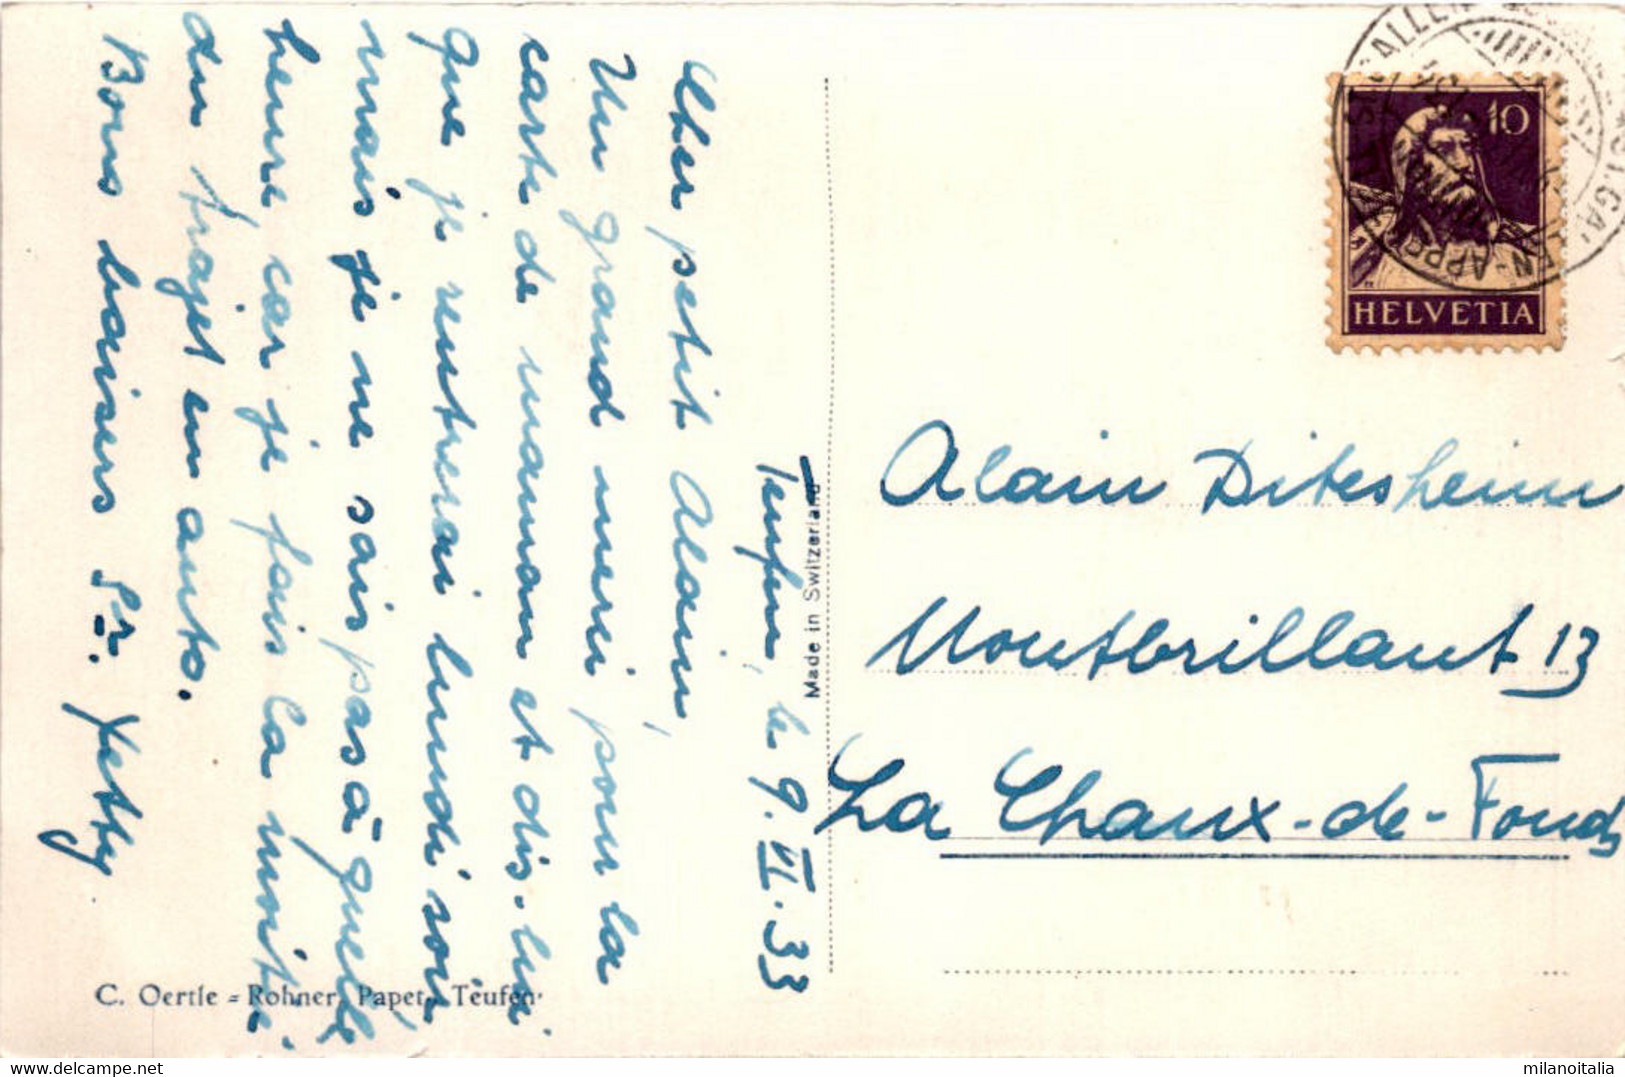 Teufen, le 9.VI.33
Cher petit Alain,
Un grand merci pour la
carte de maman et dis-lui
que je rentrerai lundi soir
mais je ne sais pas à quelle
heure, car je fais la moitié
du trajet en auto.
Bons baisers Sr. Hetty
Made in Switzerland
C. Oertle = Rohner, Papet., Teufen
10
HELVETIA
Alain Ditesheim
Montbrillant 13
La Chaux-de-Fonds
milanoitalia